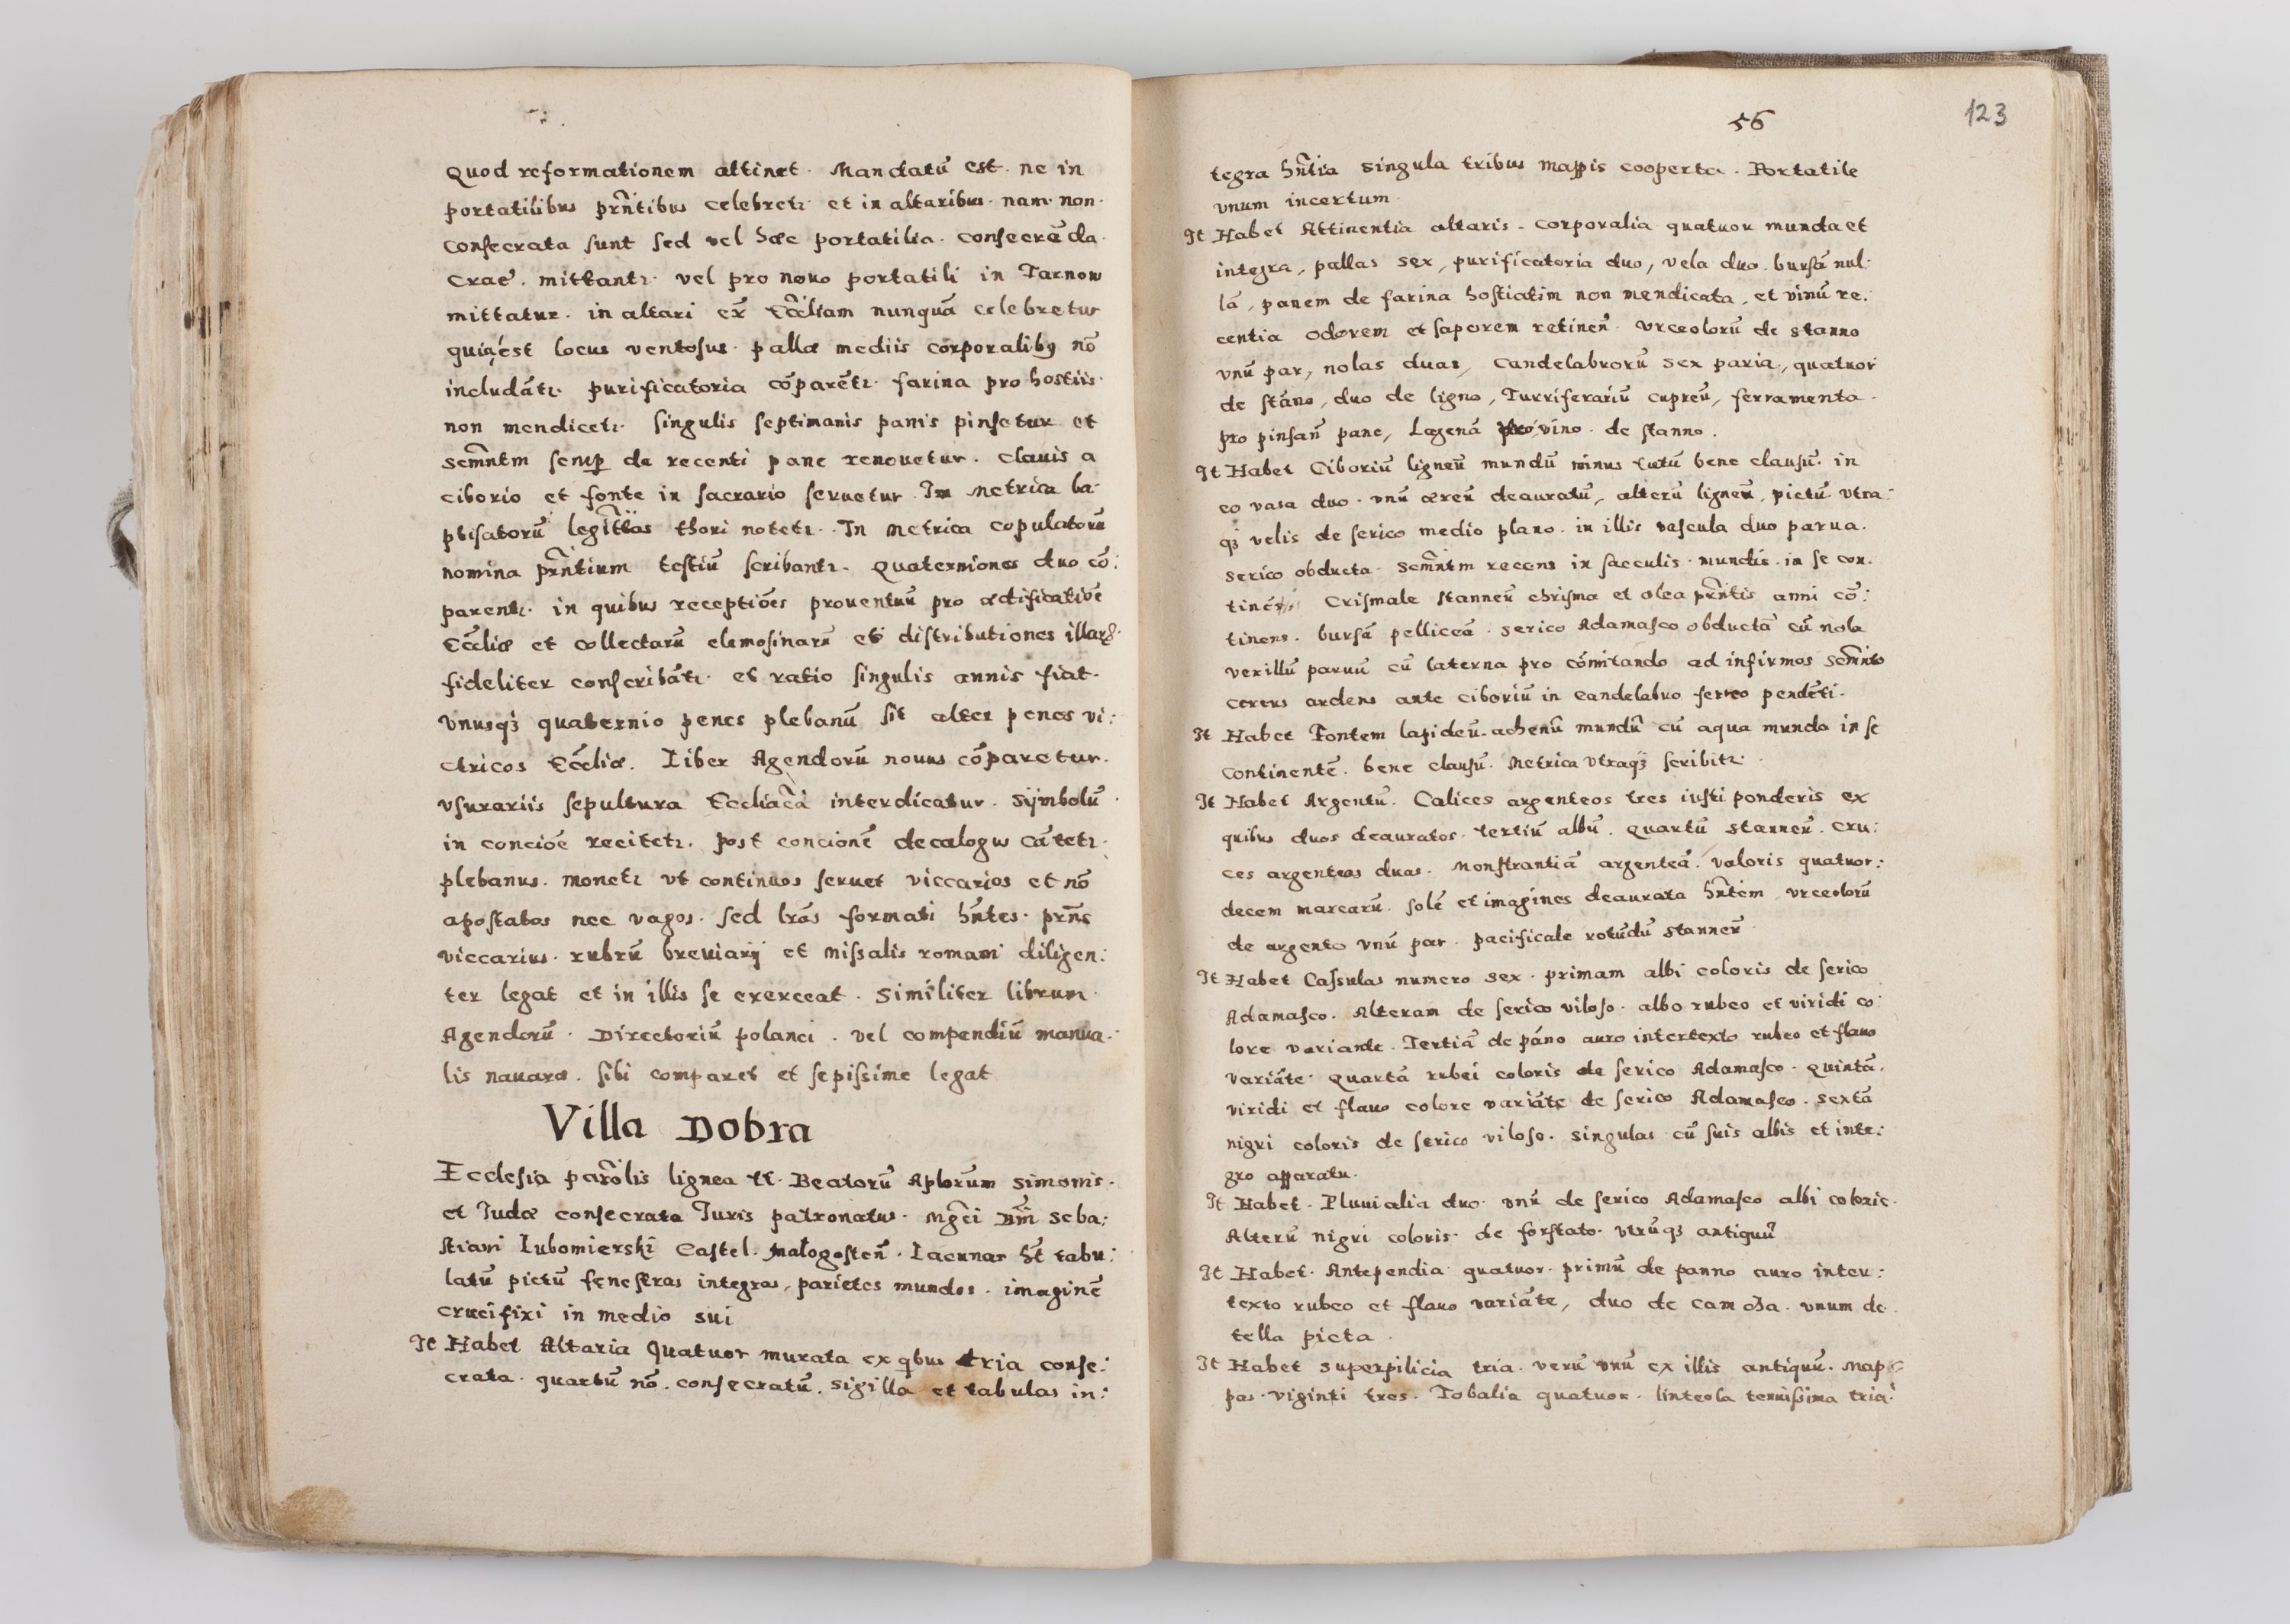 Quod reformationem attinet. Mandatū est. ne in
portatilibus prñtibus celebretr. et in altaribus. nam non.
Consecrata sunt sed vel hæc portatilia. consecrāda.
Crac̄. mittantr. vel pro nouo portatili in Tarnow
mittatur. in altari ex̄ Ecc̄liam nunquā celebretur
quia est locus ventosus. pallæ mediis corporalibq nō
includātr. purificatoria cōparētr. farina pro hostiis.
non mendicetr. singulis septimanis panis pinsetur et
semn̄tm semp de recenti pane renouetur. Clauis a
ciborio et fonte in sacrario seruetur. In Metrica ba:
ptisatorū legit̄tas thori notetr. In Metrica copulatorū
nomina prñtium testiū scribantr. Quaterniones duo cō:
parentr. in quibus receptiōēs prouentuū pro ædificatiōe
Ecc̄liæ et collectarū elemosinarū et distributiones illarꝝ.
fideliter conscribātr. et ratio singulis annis fiat.
Vnusqꝫ quaternio penes plebanū sit alter penes vi:
ctricos Ecc̄liæ. Liber Agendorū nouus cōparetur.
Vsurariis sepultura Eccliac̄a interdicatur. Sÿmbolū
in concioē recitetr. post concionē decalogus cātetr.
plebanus. monetr vt continuos seruet viccarios et nō
apostatas nec vagos. sed lr̄as formati hñtes. prñs
viccarius. rubrū breviarij et Missalis romani diligen:
ter legat et in illis se exerceat. Similiter librum
Agendorū. Directoriū polanci. vel compendiū manua:
lis nauaræ. sibi comparet et sepissime legat
Villa Dobra
Ecclesia par̄olis lignea tt. Beatorū Aplorum Simonis.
et Iudæ consecrata Iuris patronatus. Mgc̄i Dn̄i Seba:
stiani Lubomierski Castel. Małogosten̄. Lacunar h̄t tabu:
latū pictū fenestras integras, parietes mundos. imaginē
crucifixi in medio sui
It Habet Altaria Quatuor murata ex qibus tria conse:
crata. quartū nō. consecratū. sigilla et tabulas in:
56
123
tegra hñtia singula tribus mappis cooperta. Portatile
vnum incertum.
It Habet Attinentia altaris. Corporalia quatuor munda et
integra, pallas sex, purificatoria duo, vela duo. bursā nul:
lā, panem de farina hostiatim non mendicata, et vinū re:
centia odorem et saporem retinen̄. Vrceolorū de stanno
vnū par, nolas duas, Candelabrorū sex paria, quatuor
de stāno, duo de ligno, Turriferariū cupreū, ferramenta.
pro pinsan̄ pane, Lagenā pro vino de stanno.
It Habet Ciboriū ligneū mundū minus tutū bene clausū. in
eo vasa duo. vnū æreū deauratū, alterū ligneū, pictū vtra:
qꝫ velis de serico medio plano. in illis vascula duo parua.
serico obducta. Semn̄tm recens in sacculis. mundis. in se con:
tinēs Crismale stanneū chrisma et olea prñtis anni cō:
tinens. bursā pelliceā. serico Adamasco obductā cū nola
vexillū paruū cū laterna pro cōmitando ad infirmos Semn̄to
cereus ardens ante ciboriū in candelabro ferreo pendēti.
It Habet Fontem lapideū. achenū mundū cū aqua munda in se
continentē. bene clausū. Metrica vtraqꝫ scribitr.
It Habet Argentū. Calices argenteos tres iusti ponderis ex
quibus duos deauratos. tertiū albū. quartū stanneū. Cru:
ces argenteas duas. Monstrantiā argenteā. valoris quatuor:
decem marcarū. solē et imagines deaurata hñtem, vrceolorū
de argento vnū par. pacificale rotūdū stanneū.
It Habet Casulas numero sex. primam albi coloris de serico
Adamasco. Alteram de serico viloso. albo rubeo et viridi co:
lore variante. Tertiā de pāno auro intertexto rubeo et flauo
variāte. quartā rubei coloris de serico Adamasco. quintā.
viridi et flauo colore variāte de serico Adamasco. sextā
nigri coloris de serico viloso. singulas cū suis albis et inte:
gro apparatu.
It Habet. Pluuialia duo. vnū de serico Adamasco albi coloris.
Alterū nigri coloris. de forstato. vtrūqꝫ antiquū
It Habet. Antependia quatuor. primū de panno auro inter:
texto rubeo et flauo variāte, duo de camcha. vnum de
tella picta.
It Habet superpilicia tria. verū vnū ex illis antiquū. Map:
pas. viginti tres. Tobalia quatuor. linteola tenuissima tria.